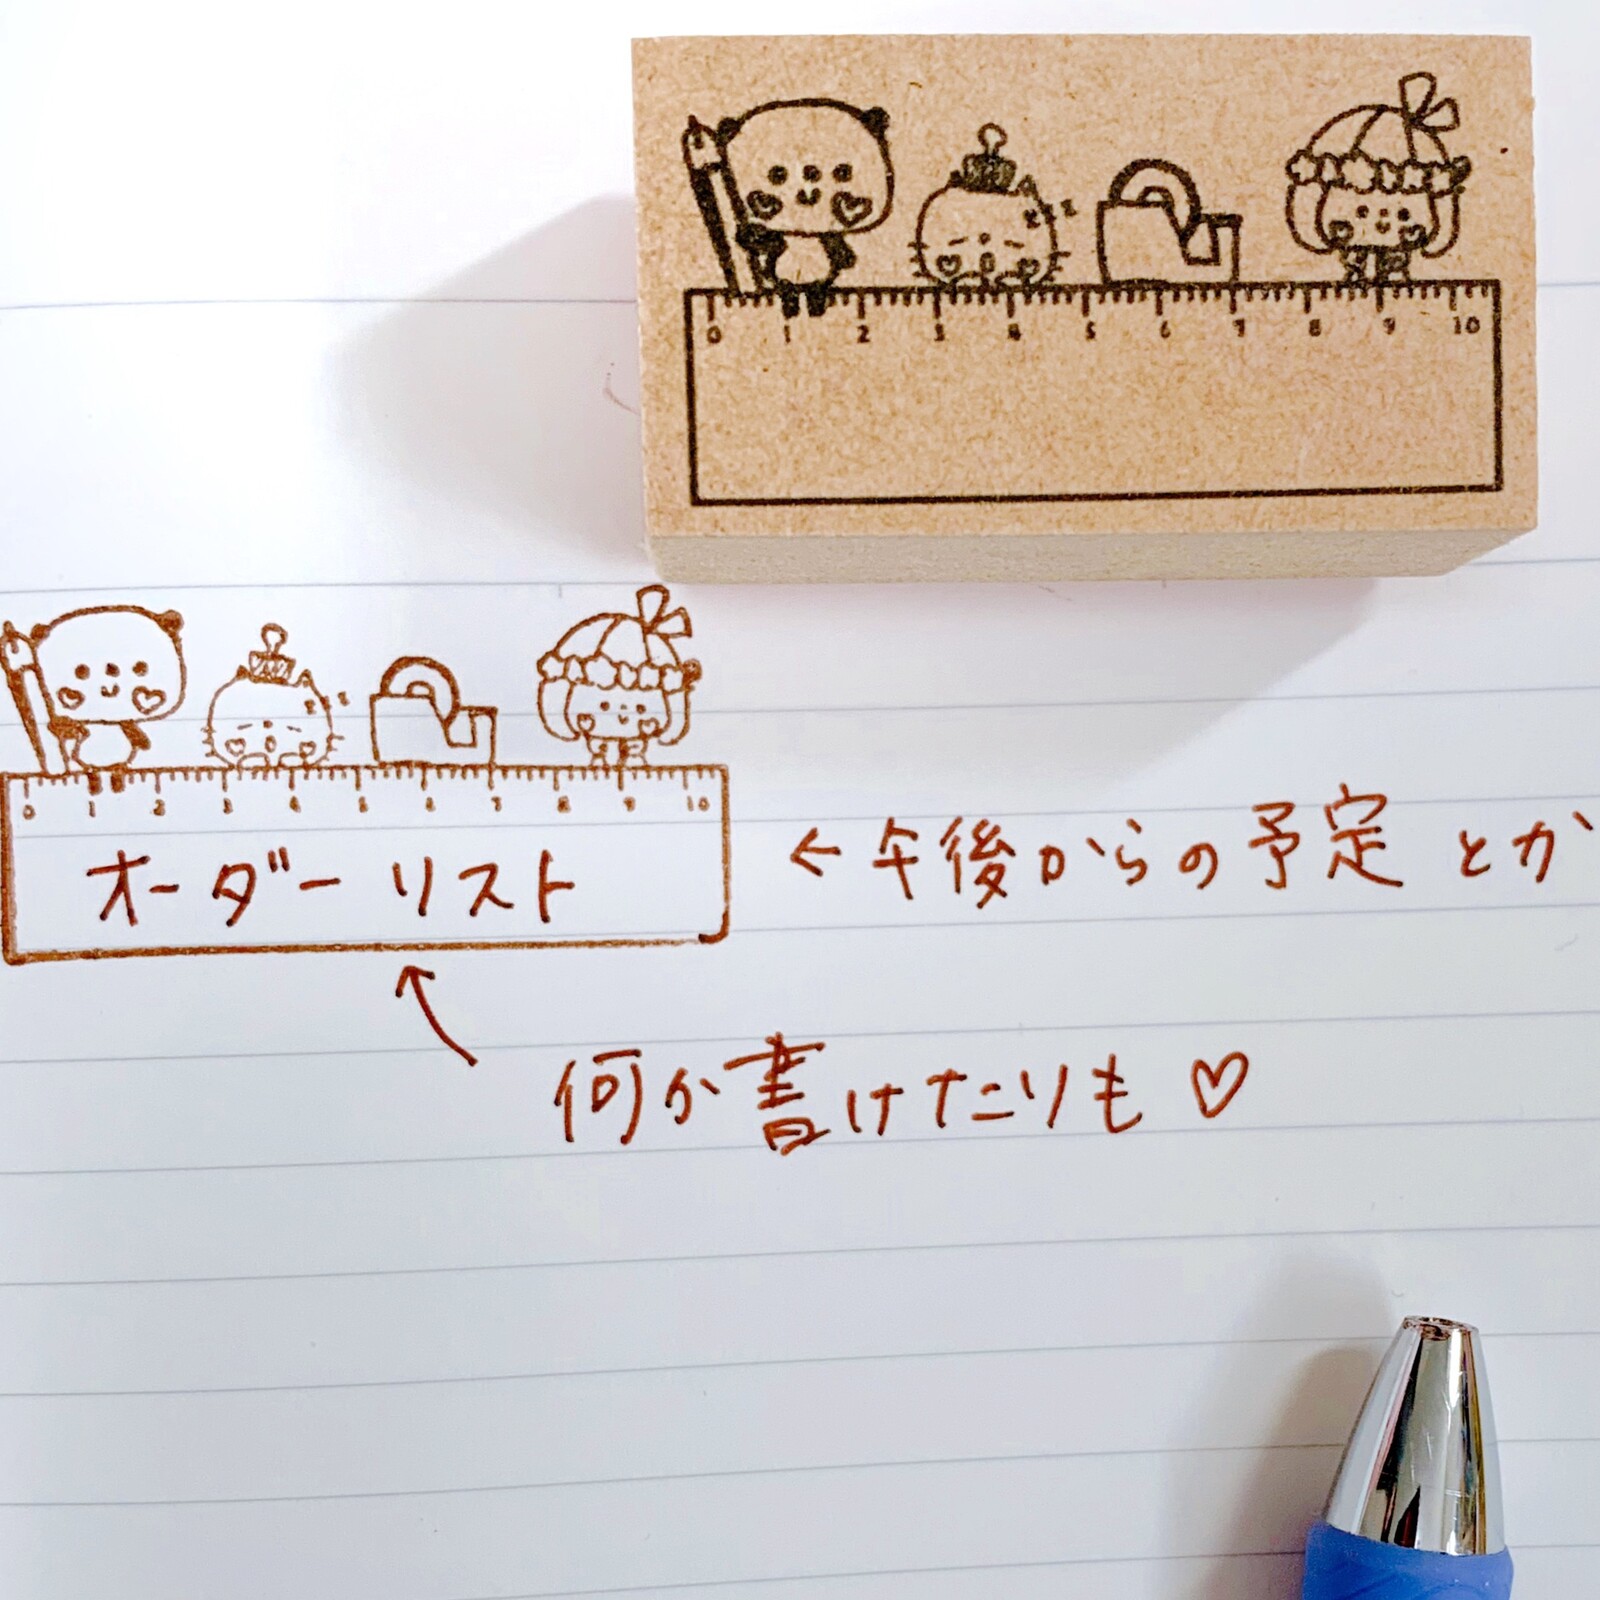 zzz
0 1 2 3 4 5 6 7 8 9 10
zzz
0 1 2 3 4 5 6 7 8 9 10
オーダーリスト
← 午後からの予定とか
何か書けたりも ♡